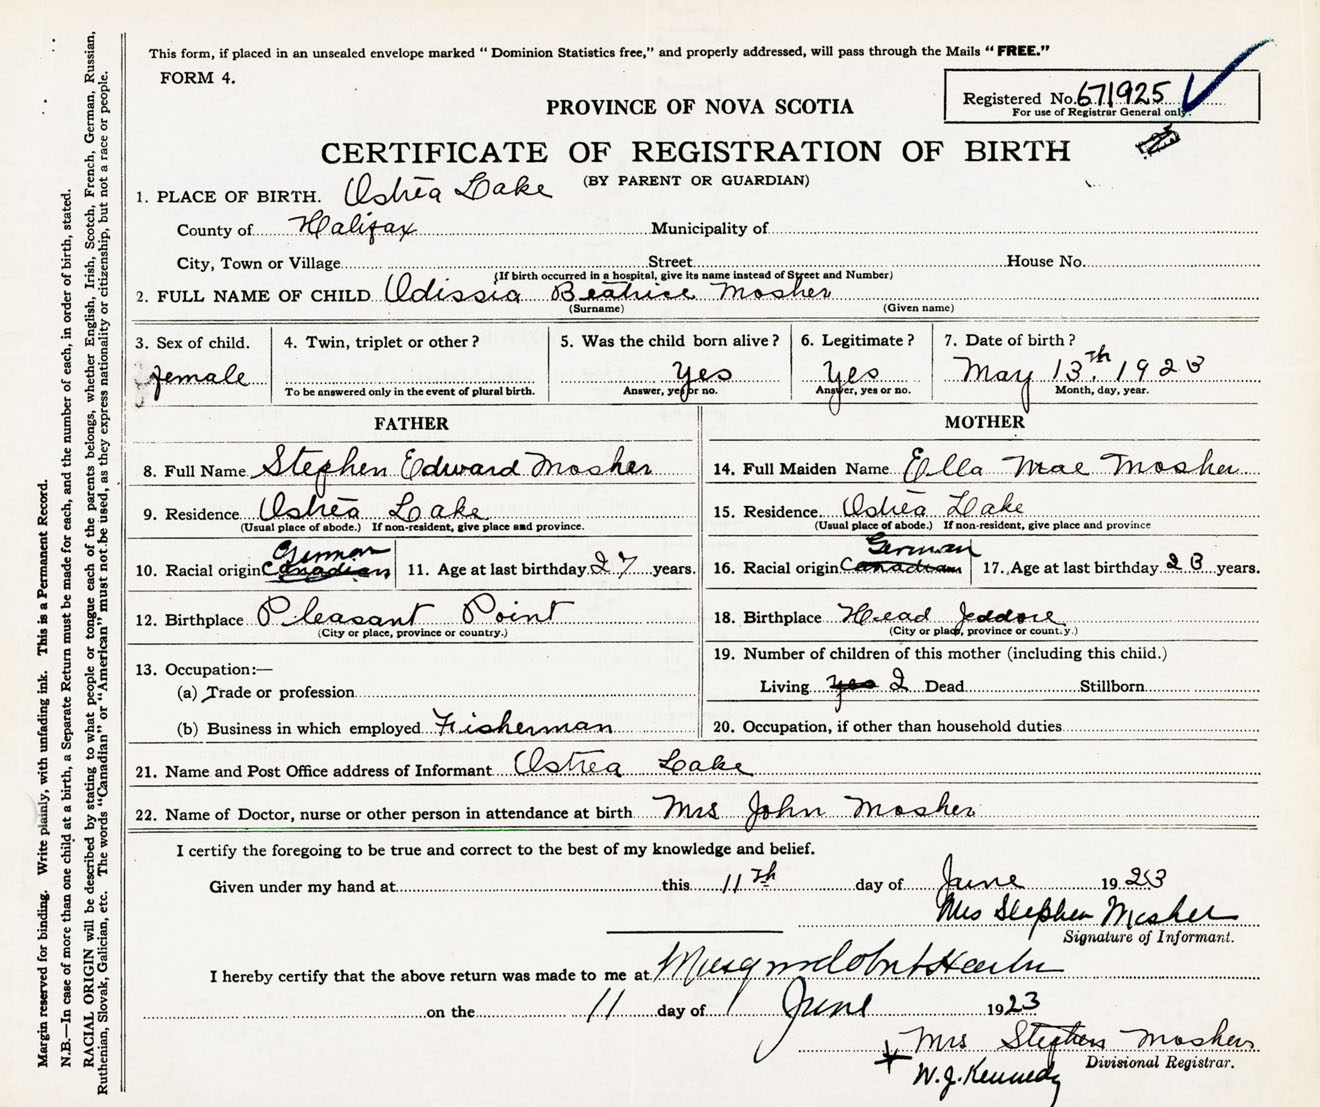 This form, if placed in an unsealed envelope marked " Dominion Statistics free," and properly addressed, will pass through the Mails " FREE."
FORM 4.
Registered No. 671925
For use of Registrar General only.
PROVINCE OF NOVA SCOTIA
CERTIFICATE OF REGISTRATION OF BIRTH
(BY PARENT OR GUARDIAN)
1. PLACE OF BIRTH. Ostrea Lake
County of Halifax Municipality of
City, Town or Village Street House No.
(If birth occurred in a hospital, give its name instead of Street and Number)
2. FULL NAME OF CHILD Odissia Beatrice Mosher
(Surname) (Given name)
3. Sex of child. 4. Twin, triplet or other? 5. Was the child born alive? 6. Legitimate? 7. Date of birth?
female Yes Yes May 13th. 1923
To be answered only in the event of plural birth. Answer, yes or no. Answer, yes or no. Month, day, year.
FATHER MOTHER
8. Full Name Stephen Edward Mosher 14. Full Maiden Name Ella Mae Mosher
9. Residence Ostrea Lake 15. Residence Ostrea Lake
(Usual place of abode.) If non-resident, give place and province. (Usual place of abode.) If non-resident, give place and province
German German
10. Racial origin Canadian 11. Age at last birthday 27 years. 16. Racial origin Canadian 17. Age at last birthday 23 years.
12. Birthplace Pleasant Point 18. Birthplace Head Jeddore
(City or place, province or country.) (City or place, province or country.)
13. Occupation:— 19. Number of children of this mother (including this child.)
(a) Trade or profession Living yes 2 Dead Stillborn
(b) Business in which employed Fisherman 20. Occupation, if other than household duties
21. Name and Post Office address of Informant Ostrea Lake
22. Name of Doctor, nurse or other person in attendance at birth Mrs John Mosher
I certify the foregoing to be true and correct to the best of my knowledge and belief.
Given under my hand at this 11th day of June 1923
Mrs Stephen Mosher
Signature of Informant.
I hereby certify that the above return was made to me at Musquodoboit Harbor
on the 11 day of June 1923
Mrs Stephen Mosher
Divisional Registrar.
W. J. Kennedy
Margin reserved for binding. Write plainly, with unfading ink. This is a Permanent Record.
N.B.—In case of more than one child at a birth, a Separate Return must be made for each, and the number of each, in order of birth, stated.
RACIAL ORIGIN will be described by stating to what people or tongue each of the parents belongs, whether English, Irish, Scotch, French, German, Russian,
Ruthenian, Slovak, Galician, etc. The words "Canadian" or "American" must not be used, as they express nationality or citizenship, but not a race or people.